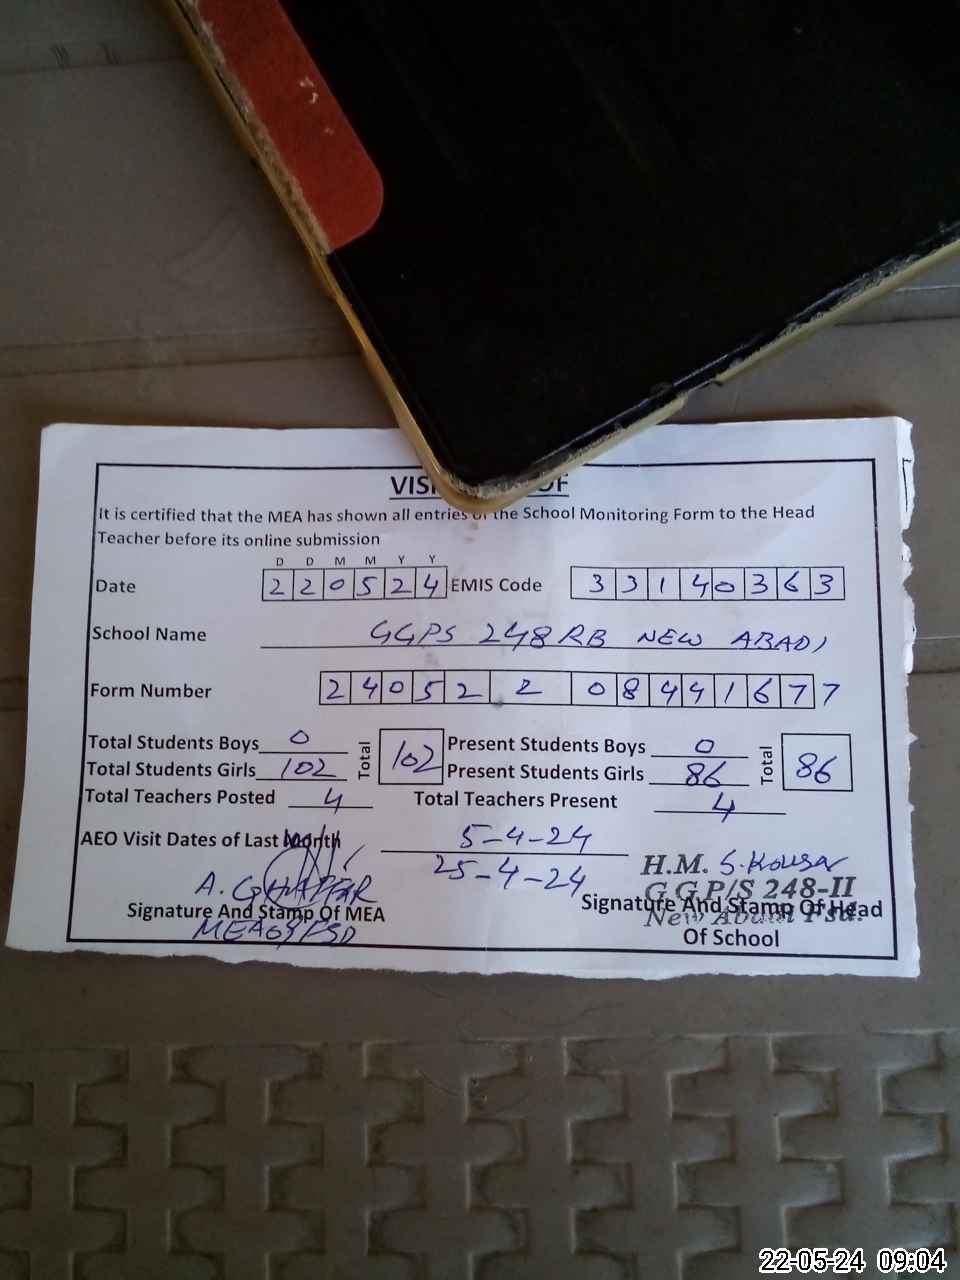 VIS OF
It is certified that the MEA has shown all entries of the School Monitoring Form to the Head
Teacher before its online submission
D D M M Y Y
Date 2 2 0 5 2 4 EMIS Code 3 3 1 4 0 3 6 3
School Name GGPS 248 RB NEW ABADI
Form Number 2 4 0 5 2 2 0 8 4 4 1 6 7 7
Total Students Boys 0 Total 102 Present Students Boys 0 Total 86
Total Students Girls 102 Present Students Girls 86
Total Teachers Posted 4 Total Teachers Present 4
AEO Visit Dates of Last Month 5-4-24
25-4-24
H.M. S. Kousar
A. GHAFFAR G G P/S 248-II
Signature And Stamp Of MEA Signature And Stamp Of Head
New Fsd.
Of School
22-05-24 09:04